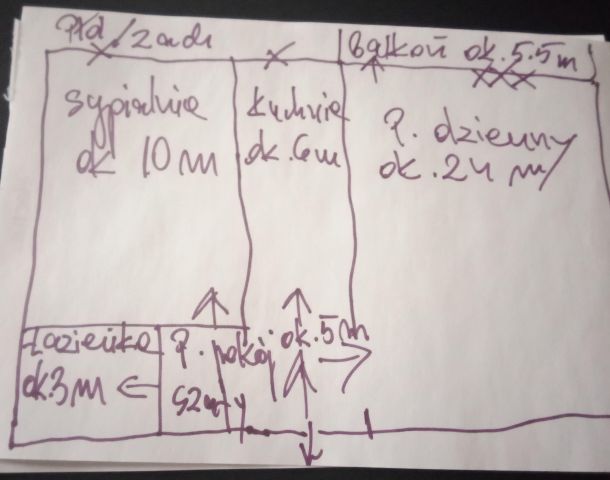 Płd./zach
Balkon ok. 5.5m
sypialnia
ok 10 m
kuchnia
ok. 6m
P. dzienny
ok. 24 m
Łazienka
ok. 3m
P. pokój ok. 5m
szafy